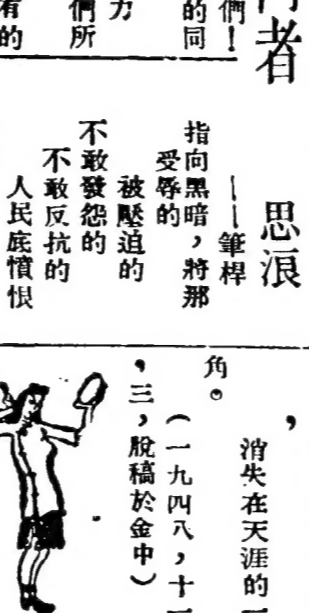 者
們！
的同
力
們所
有的
思浪
——筆桿
指向黑暗，將那
受辱的
被壓迫的
不敢發怨的
不敢反抗的
人民底憤恨
，
消失在天涯的一
角。
（一九四八，十一
，三，脫稿於金中）